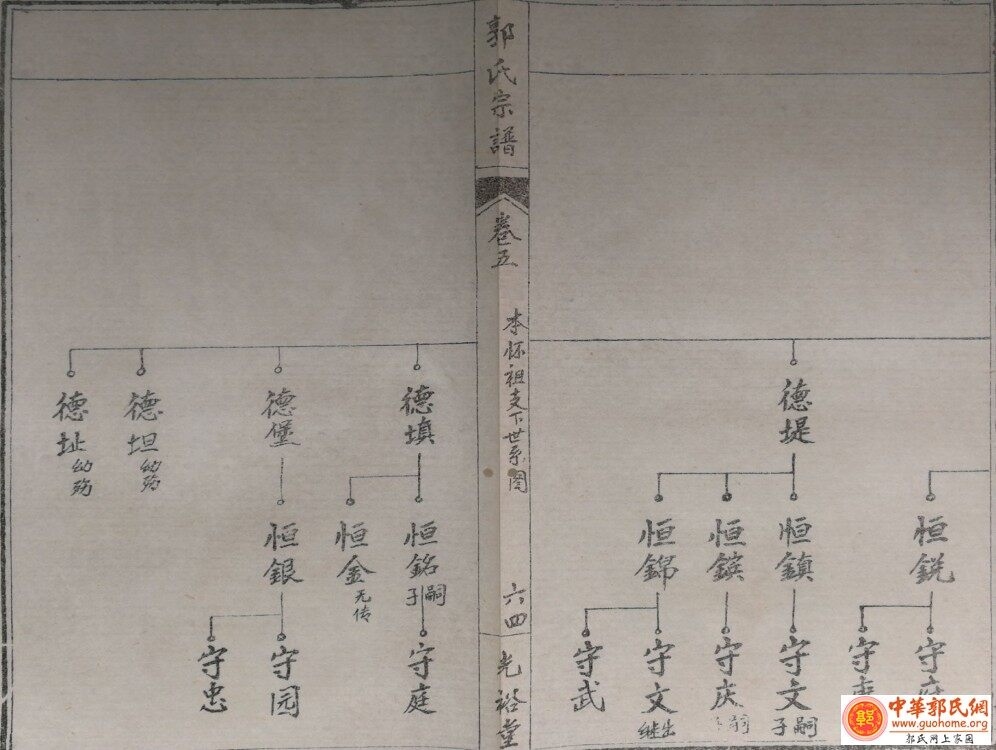 德堤
恒銳
恒鎮
恒鑌
恒錦
守文
嗣子
守庆
嗣
守文
出继
守武
郭氏宗譜
卷五
本怀祖支下世系圖
六四
光裕堂
德填
德堡
德坦
幼殇
德址
幼殇
恒銘
嗣子
恒金
无传
恒銀
守庭
守园
守忠
中華郭氏網
www.guohome.org
郭氏网上家园